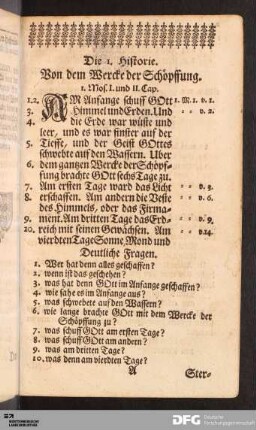 Die 1. Historie.
Von dem Wercke der Schöpffung.
1. Mos. I. und II. Cap.
1.2. AM Anfange schuff GOtt 1. M. 1. v. 1.
3. Himmel und Erden. Und = = v. 2.
4. die Erde war wüste und
leer, und es war finster auf der
5. Tieffe, und der Geist GOttes
schwebte auf den Wassern. Uber
6. dem gantzen Wercke der Schöpf-
fung brachte GOtt sechs Tage zu.
7. Am ersten Tage ward das Licht = = v. 3.
8. erschaffen. Am andern die Veste = = v. 6.
des Himmels, oder das Firma-
9. ment. Am dritten Tage das Erd- = = v. 9.
10. reich mit seinen Gewächsen. Am = = v. 14.
vierdten Tage Sonne Mond und
Deutliche Fragen.
1. Wer hat denn alles geschaffen?
2. wenn ist das geschehen?
3. was hat denn GOtt im Anfange geschaffen?
4. wie sahe es im Anfange aus?
5. was schwebete auf den Wassern?
6. wie lange brachte GOtt mit dem Wercke der
Schöpffung zu?
7. was schuff GOtt am ersten Tage?
8. was schuff GOtt am andern?
9. was am dritten Tage?
10. was denn am vierdten Tage?
A Ster-
DFG Deutsche
Forschungsgemeinschaft